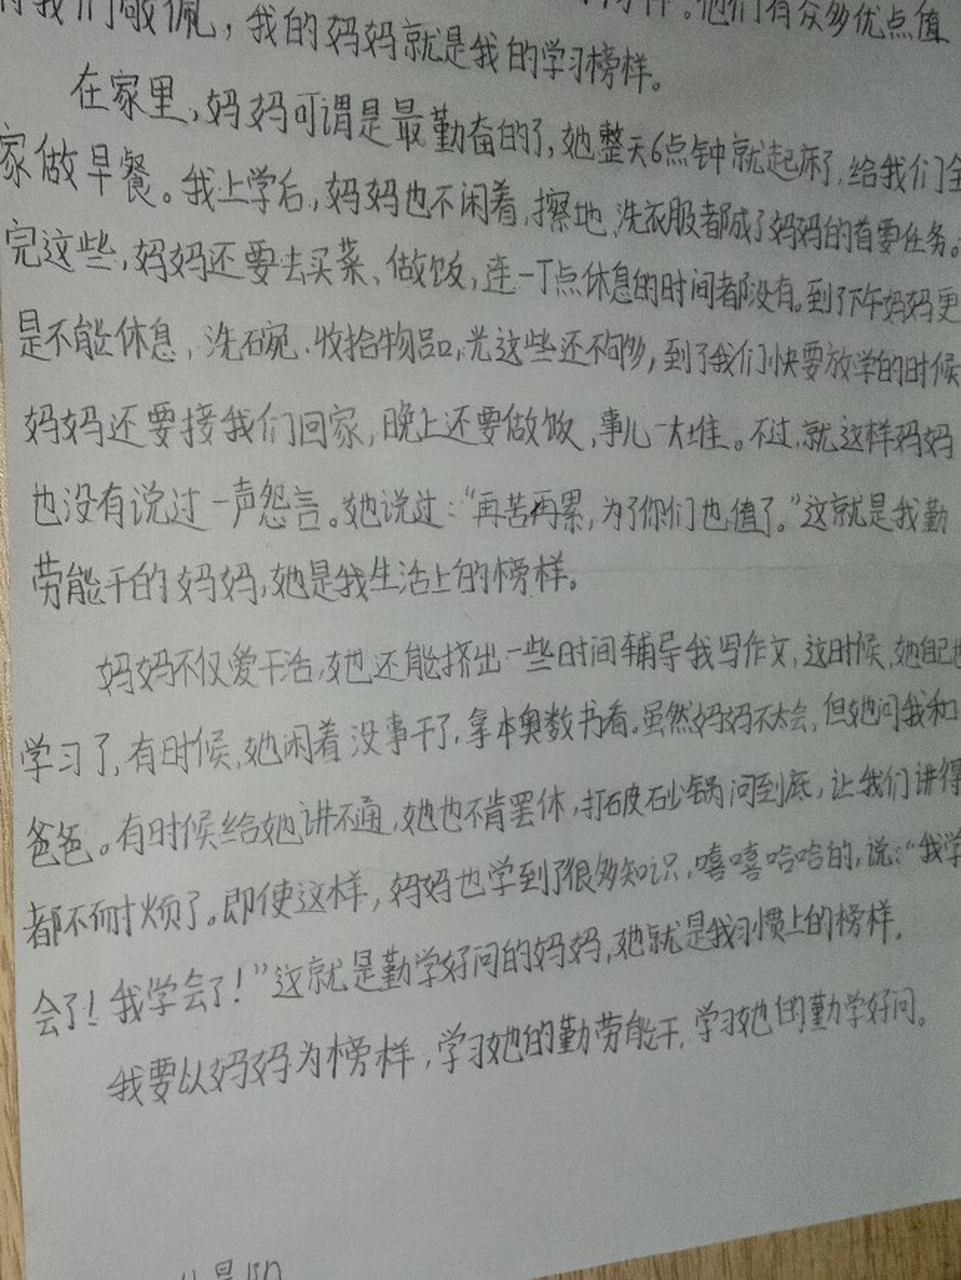 我们敬佩，我的妈妈就是我的学习榜样。他们有众多优点值
在家里，妈妈可谓是最勤奋的了，她整天6点钟就起床了，给我们全
家做早餐。我上学后，妈妈也不闲着，擦地、洗衣服都成了妈妈的首要任务。
完这些，妈妈还要去买菜、做饭，连一丁点休息的时间都没有。到了下午妈妈更
是不能休息，洗碗、收拾物品，光这些还不够，到了我们快要放学的时候
妈妈还要接我们回家，晚上还要做饭，事儿一大堆。不过，就这样妈妈
也没有说过一声怨言。她说过：“再苦再累，为了你们也值了。”这就是我勤
劳能干的妈妈，她是我生活上的榜样。
妈妈不仅爱干活，她还能挤出一些时间辅导我写作文，这时候，她自己也
学习了，有时候，她闲着没事干了，拿本奥数书看。虽然妈妈不太会，但她问我和
爸爸。有时候给她讲不通，她也不肯罢休，打破砂锅问到底，让我们讲得
都不耐烦了。即使这样，妈妈也学到了很多知识，嘻嘻哈哈的，说：“我学
会了！我学会了！”这就是勤学好问的妈妈，她就是我习惯上的榜样。
我要以妈妈为榜样，学习她的勤劳能干，学习她的勤学好问。